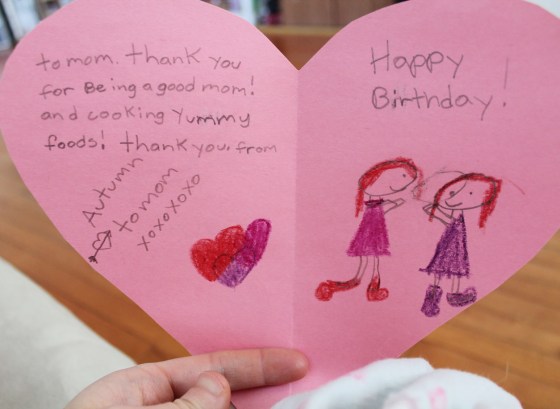 to mom. thank you
for Being a good mom!
and cooking yummy
foods! thank you, from
Autumn
to mom
xoxoxoxo
Happy
Birthday!